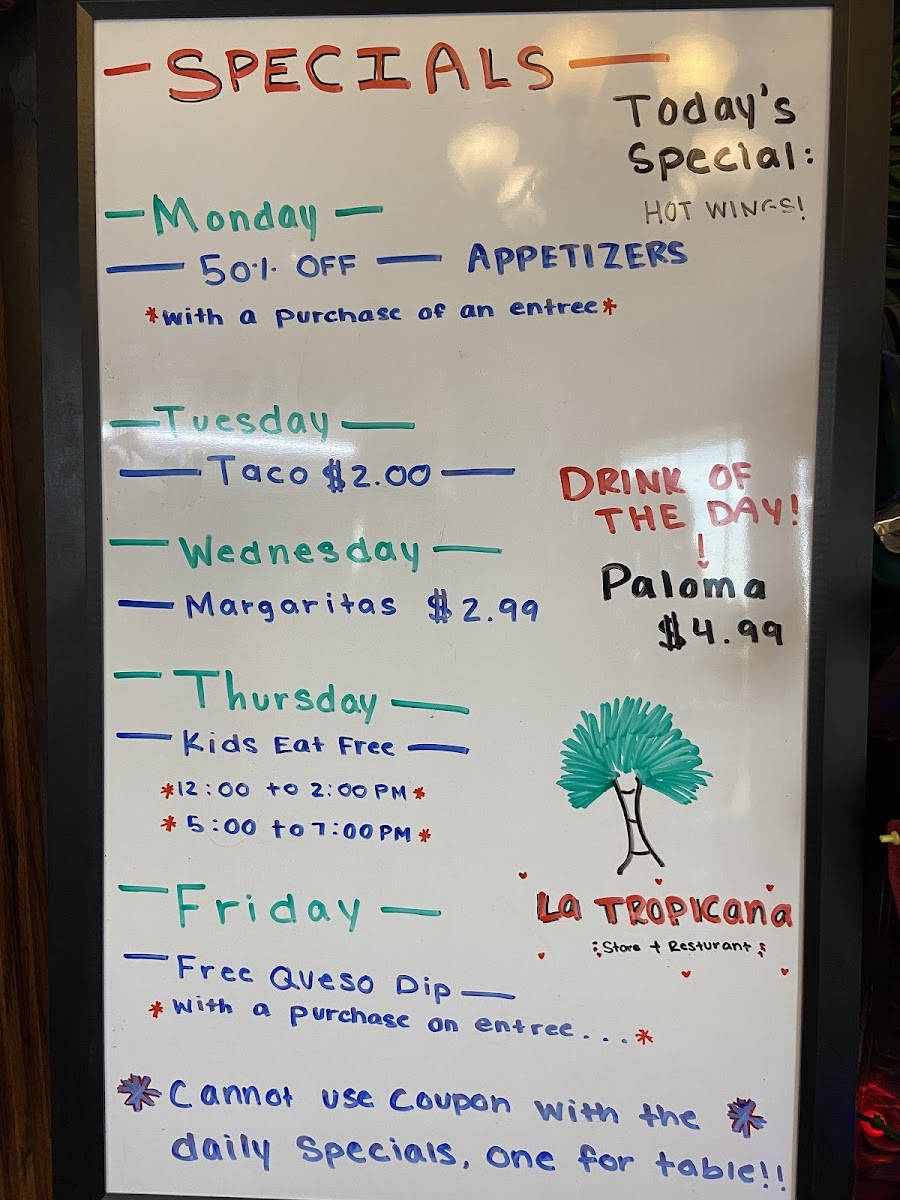 SPECIALS
Today's
Special:
HOT WINGS!
Monday
50% OFF — APPETIZERS
*with a purchase of an entree*
Tuesday
Taco $2.00
Wednesday
Margaritas $2.99
DRINK OF
THE DAY!
!
Paloma
$4.99
Thursday
Kids Eat Free
*12:00 to 2:00 PM*
*5:00 to 7:00 PM*
Friday
Free Queso Dip
*with a purchase on entree...*
La TROPICana
Store + Resturant
* Cannot use coupon with the *
daily specials, one for table!!